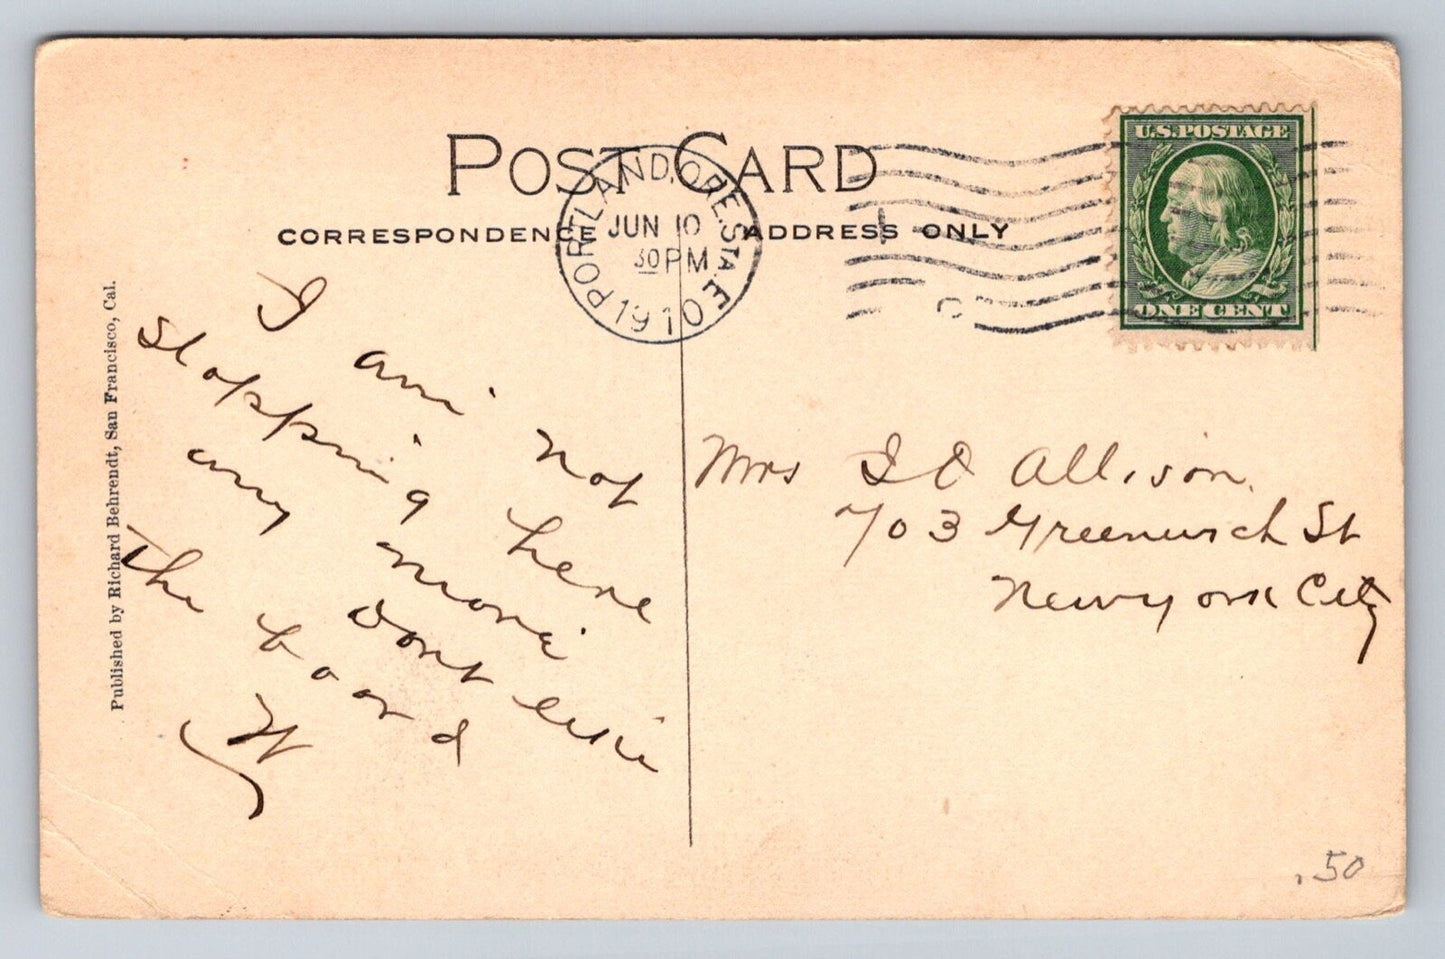 POST CARD
CORRESPONDENCE
ADDRESS ONLY
PORTLAND, ORE. STA. E.
JUN 10
30 PM
1910
U.S. POSTAGE
ONE CENT
Published by Richard Behrendt, San Francisco, Cal.
I am not
stopping here
any more
Dont like
the board
H
Mrs I D Allison
703 Greenwich St
New york City
.50